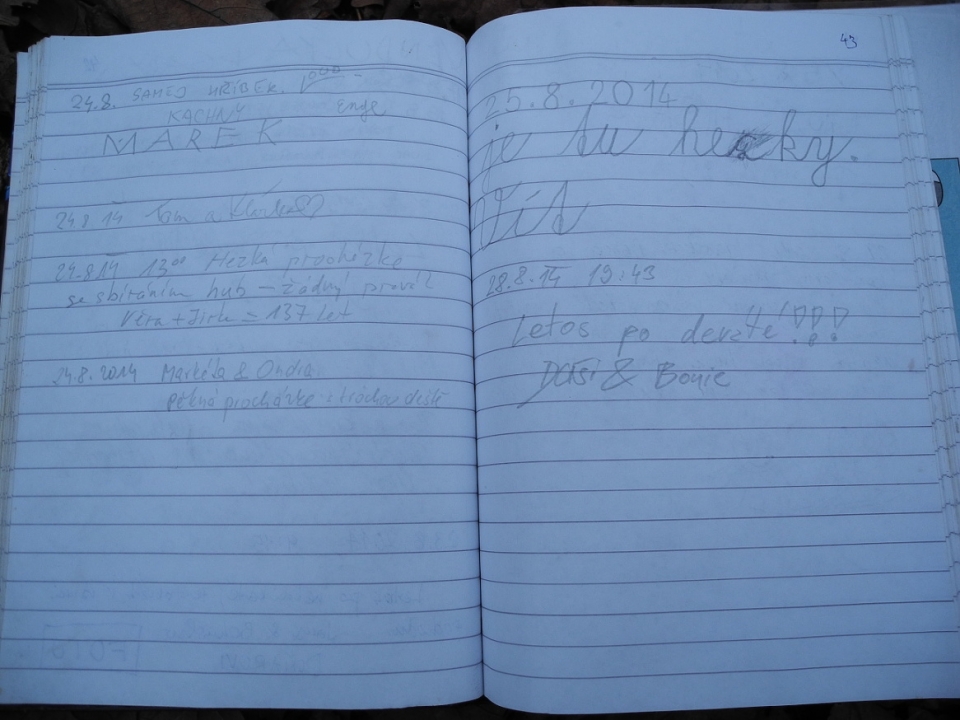 24.8. SAMEJ HŘÍBEK.
KACHNY
MAREK
24.8.14 Tom a
24.8.14 13⁰⁰ Hezká procházka
se sbíráním hub – žádný
Věra + Jirka = 137 let
24.8.2014 Markéta & Ondra
pěkná procházka i trochou deště
43
25.8.2014
je tu hezky.
Jíťa
28.8.14 19:43
Letos po deváté!!!
Daši & Bonie